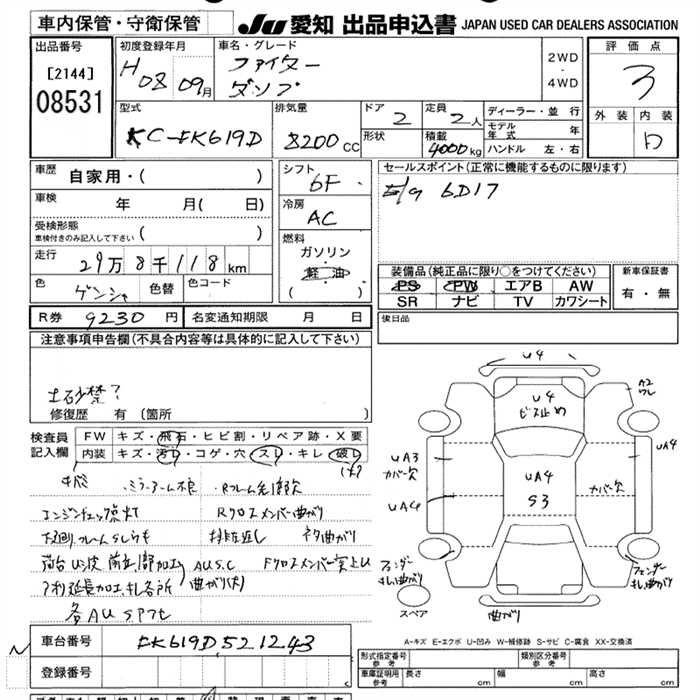 車内保管・守衛保管
JU 愛知 出品申込書 JAPAN USED CAR DEALERS ASSOCIATION
出品番号
[2144]
08531
初度登録年月
H 08 09月
車名・グレード
ファイター
ダンプ
2WD
・
4WD
評価点
3
外装 内装
D
型式
KC-FK619D
排気量
8200cc
ドア 2
形状
定員 2人
積載 4000kg
ディーラー・並行
モデル年式 年
ハンドル 左・右
車歴
自家用・( )
車検 年 月( 日)
受検形態
車検付きのみ記入して下さい ( )
走行
29万8千118km
色 ゲンシャ 色替 色コード
シフト
6F
冷房
AC
燃料
ガソリン
・
軽油
( )
セールスポイント(正常に機能するものに限ります)
E/g 6D17
装備品(純正品に限り○をつけてください)
PS PW エアB AW
SR ナビ TV カワシート
新車保証書
有・無
R券 9230円 名変通知期限 月 日
後日品
注意事項申告欄(不具合内容等は具体的に記入して下さい)
土砂禁?
修復歴 有 (箇所 )
検査員記入欄
FW キズ・飛石・ヒビ割・リペア跡・X要
内装 キズ・汚レ・コゲ・穴・スレ・キレ・破レ
ミラーアーム不良
エンジンチェック点灯
Rクロスメンバー曲がり
下廻りフレームSしらも
荷台
AU.S.C
Fクロスメンバー突上U
曲がり(大)
各AUSアフセ
U4
U4
ビス止め
A2
ワレ
UA3
カバー欠
UA4
UA4
UA4
S3
カバー欠
フェンダー
キレ曲がり
フェンダー
キレ曲がり
スペア
曲がり
A-キズ E-エクボ U-凹み W-補修跡 S-サビ C-腐食 XX-交換済
車台番号 FK619D.521243
登録番号
形式指定番号 参考
類別区分番号 参考
車庫証明用 参考 長さ cm 幅 cm 高さ cm